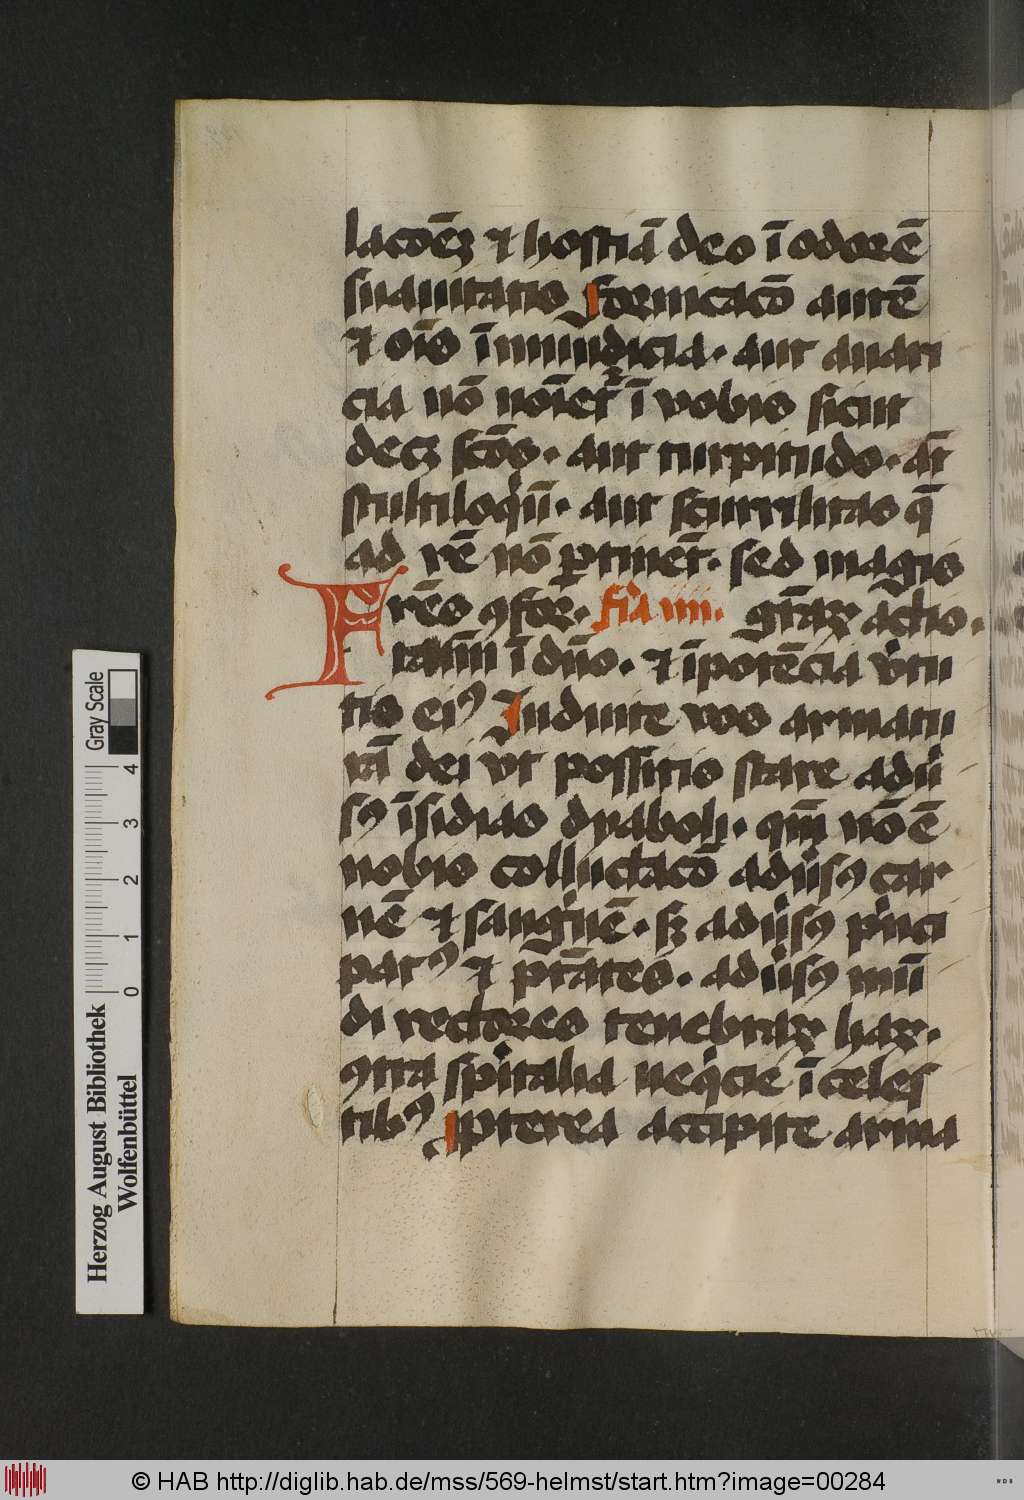 lacōeꝫ ⁊ hostiā deo ī odorē
suauitatis fornicacō autē
⁊ oīs īmūdicia. aut auari
cia nō noīet᷑ ī vobis sicut
decꝫ scōs. aut turpitudo. a͞t
stultiloqͥū. aut scurrilitas q̄
ad rē nō ꝑtinēt. sed magis
gr̄aꝝ actio.
Frēs ꝯfor. fia iiii.
tamī ī dn̄o. ⁊ ī potēcia vͥtu
tis eiꝰ Induite vos armatu
rā dei vt possitis stare adu̇
sꝰ īsidias dyaboli. qm̄ nō ē
nobis colluctacō adu̇sꝰ car
nē ⁊ sangͥnē. sꝫ adu̇sꝰ pͥnci
patꝰ ⁊ pt̄ātes. adu̇sꝰ mū
di rectores tenebraꝝ haꝝ.
ꝯtra spͥitalia neqͥcie ī celes
tibꝰ ꝓpterea accipite arma
Herzog August Bibliothek
Wolfenbüttel
0 1 2 3 4
Gray Scale
© HAB http://diglib.hab.de/mss/569-helmst/start.htm?image=00284